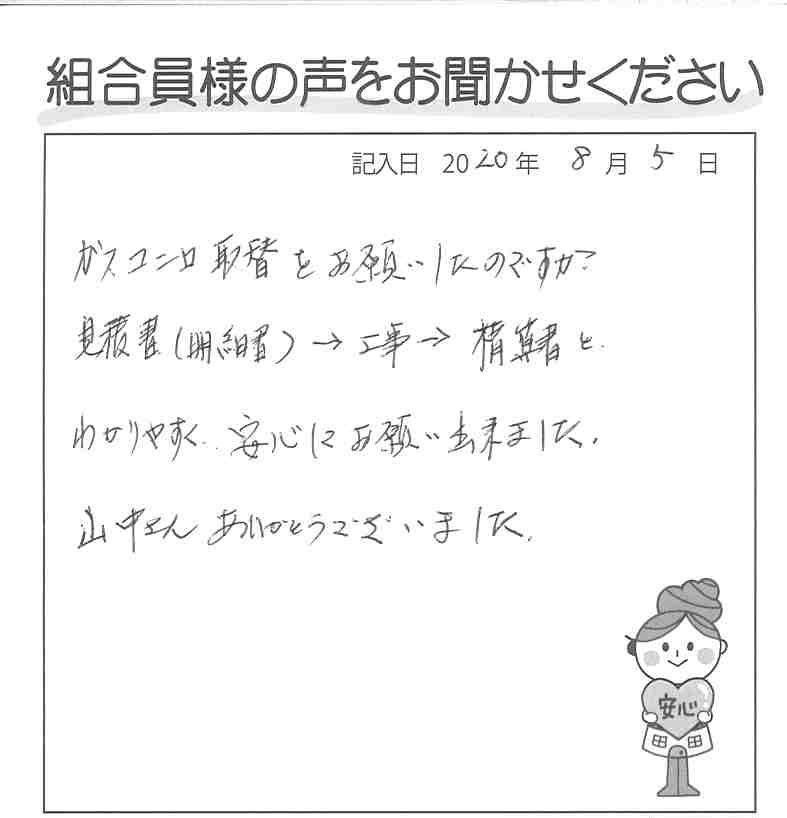 組合員様の声をお聞かせください
記入日 2020年 8月 5日
ガスコンロ取替をお願いしたのですが、
見積書(明細書)→工事→精算書と、
わかりやすく、安心にお願い出来ました。
山中さんありがとうございました。
安心